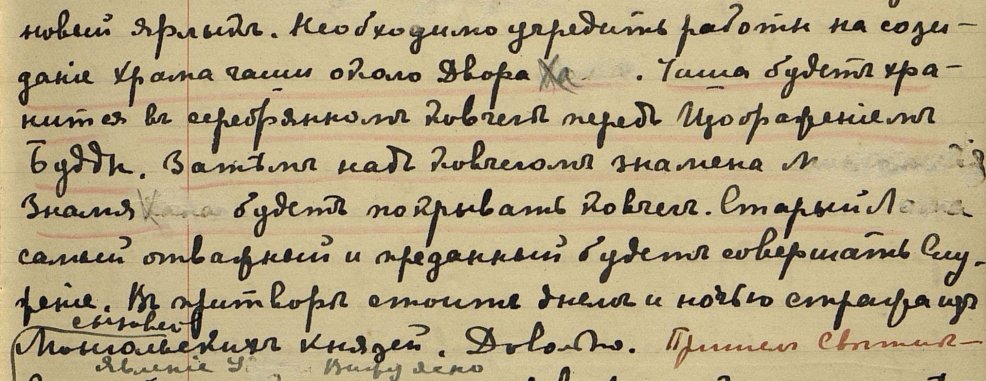 новый ярлыкъ. Необходимо учредить работы на сози-
данiе Храма чаши около Двора Ха . Чаша будетъ хра-
нится въ серебрянномъ Ковчегѣ передъ Изображенiемъ
Будды. Затѣмъ надъ Ковчегомъ знамена М
Знамя будетъ покрывать Ковчегъ. Старый Лама
самый отважный и преданный будетъ совершать Слу-
женiе. Въ притворѣ стоитъ днемъ и ночью стража изъ
сыновей
Монгольскихъ Князей. Довольно. Пришелъ
Явленiе Вижу ясно